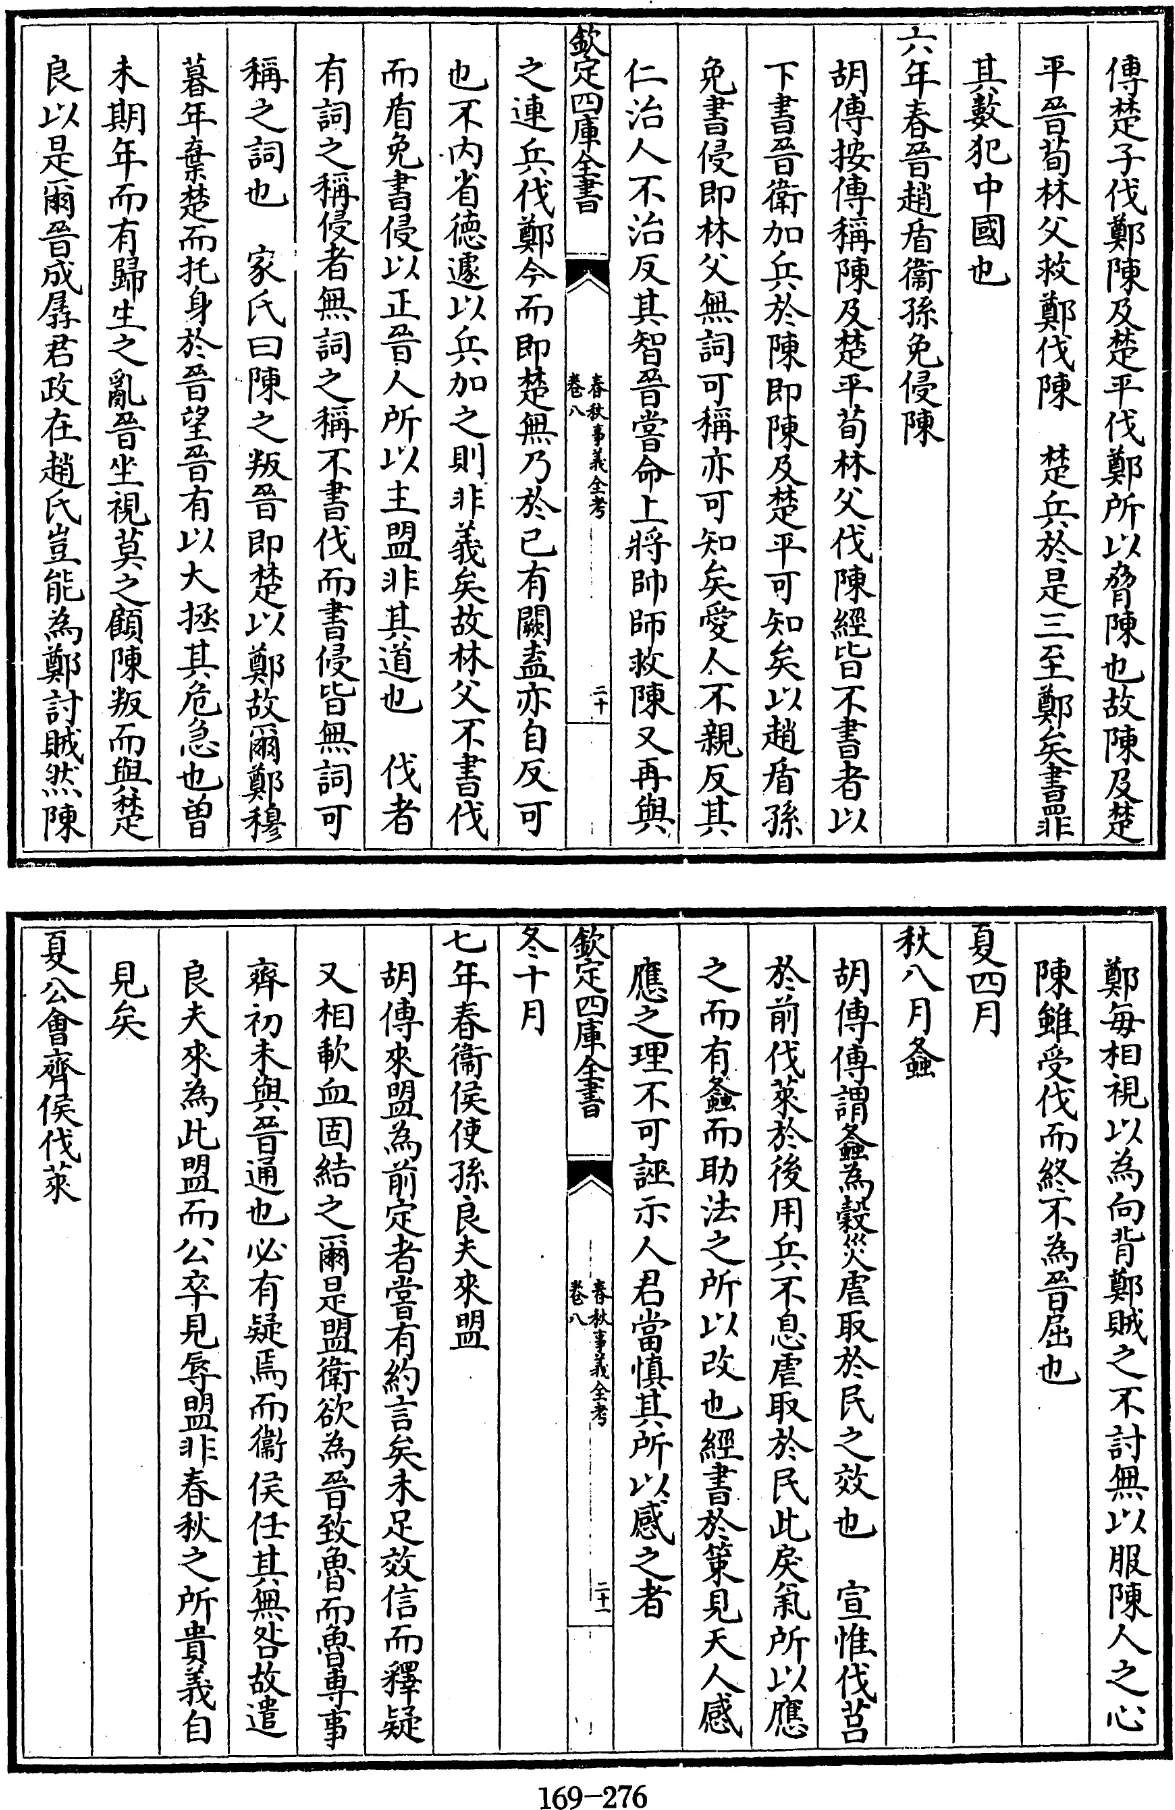 傳楚子伐鄭陳及楚平伐鄭所以脅陳也故陳及楚
平晉荀林父救鄭伐陳　楚兵於是三至鄭矣書罪
其數犯中國也
六年春晉趙盾衞孫免侵陳
胡傳按傳稱陳及楚平荀林父伐陳經皆不書者以
下書晉衛加兵於陳即陳及楚平可知矣以趙盾孫
免書侵即林父無詞可稱亦可知矣愛人不親反其
仁治人不治反其智晉嘗命上將帥師救陳又再與
欽定四庫全書
春秋事義全考
卷八
二十
之連兵伐鄭今而即楚無乃於己有闕盍亦自反可
也不内省德遽以兵加之則非義矣故林父不書伐
而盾免書侵以正晉人所以主盟非其道也　伐者
有詞之稱侵者無詞之稱不書伐而書侵皆無詞可
稱之詞也　家氏曰陳之叛晉即楚以鄭故爾鄭穆
暮年棄楚而托身於晉望晉有以大拯其危急也曽
未期年而有歸生之亂晉坐視莫之顧陳叛而與楚
良以是爾晉成孱君政在趙氏豈能為鄭討賊然陳
鄭每相視以為向背鄭賊之不討無以服陳人之心
陳雖受伐而終不為晉屈也
夏四月
秋八月螽
胡傳傳謂螽為穀災虐取於民之效也　宣惟伐莒
於前伐萊於後用兵不息虐取於民此戾氣所以應
之而有螽而助法之所以改也經書於策見天人感
應之理不可誣示人君當慎其所以感之者
欽定四庫全書
春秋事義全考
卷八
二十一
冬十月
七年春衞侯使孫良夫來盟
胡傳來盟為前定者嘗有約言矣未足效信而釋疑
又相歃血固結之爾是盟衛欲為晉致魯而魯專事
齊初未與晉通也必有疑焉而衞侯任其無咎故遣
良夫來為此盟而公卒見辱盟非春秋之所貴義自
見矣
夏公會齊侯伐萊
169-276